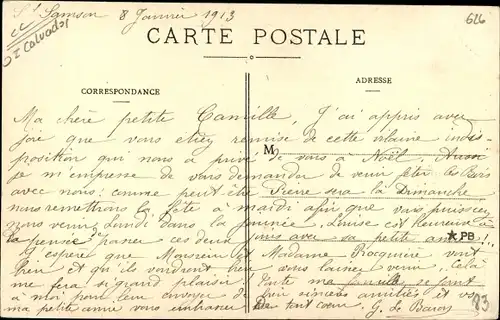 St Samson 8 Janvier 1913
Calvados
626
CARTE POSTALE
CORRESPONDANCE
ADRESSE
M
Ma chère petite Camille, J'ai appris avec
joie que vous étiez remise de cette vilaine indis
position qui nous a privé de vous à Noël. Aussi
je m'empresse de vous demander de venir fêter les Rois
avec nous; comme peut être Pierre sera là Dimanche
nous remettrons la fête à mardi afin que vous puissiez
nous venir Lundi dans la journée, Louise est heureuse à
la pensée passer ces deux jours avec sa petite amie
J'espère que Monsieur et Madame Rocquiere vont
bien et qu'ils voudront bien vous laisser venir. Celà
me fera si grand plaisir! Toute ma famille se joint
à moi pour leur envoyer de bien sincères amitiés et vous
ma petite amie vous embrasser De tout coeur. J. de Baron
★ PB
83